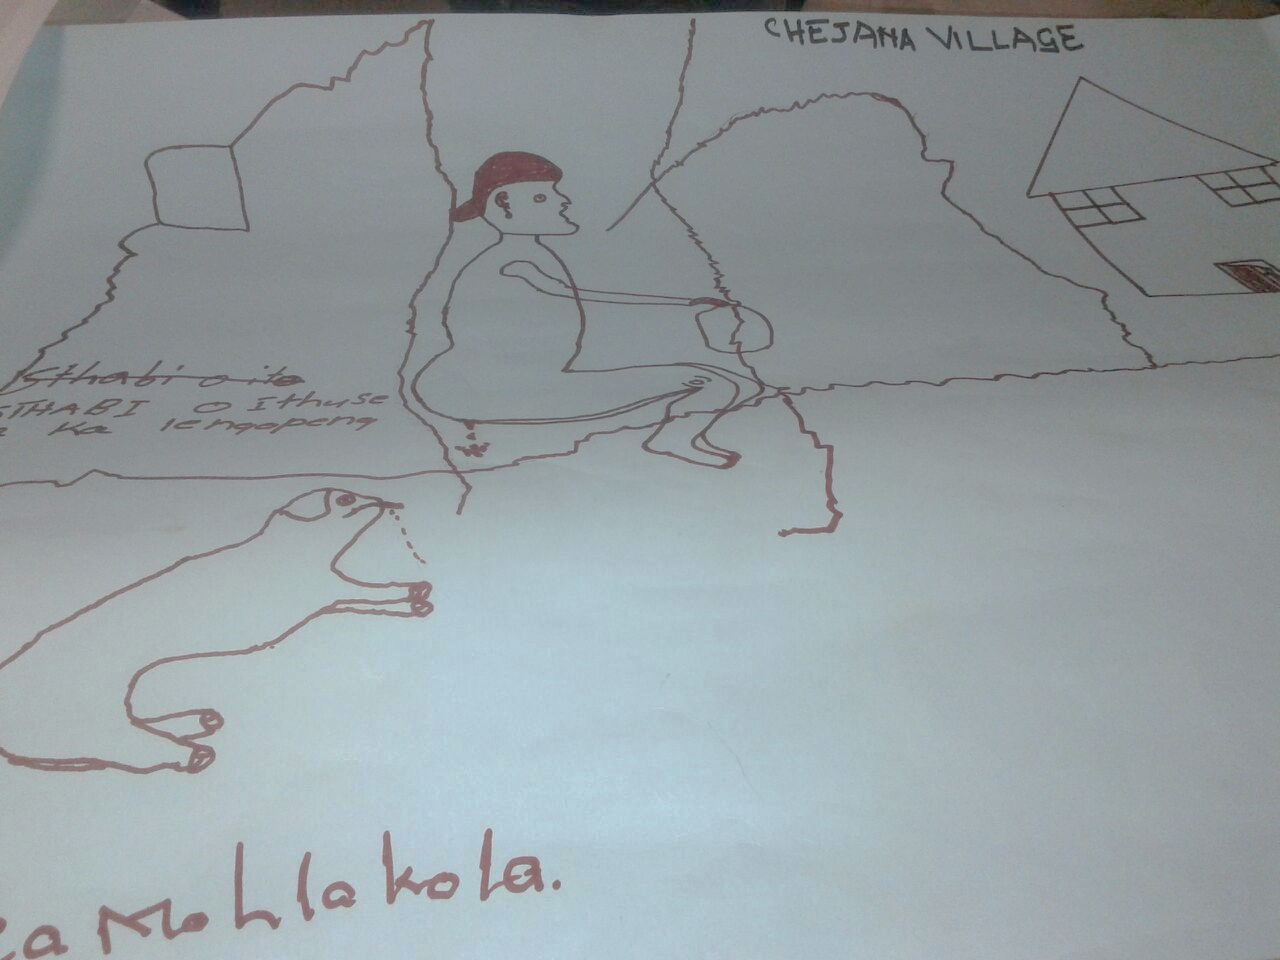 CHEJANA VILLAGE
Sthabi o ite
STHABI O Ithuse
ka lengopeng
a Mohlakola.